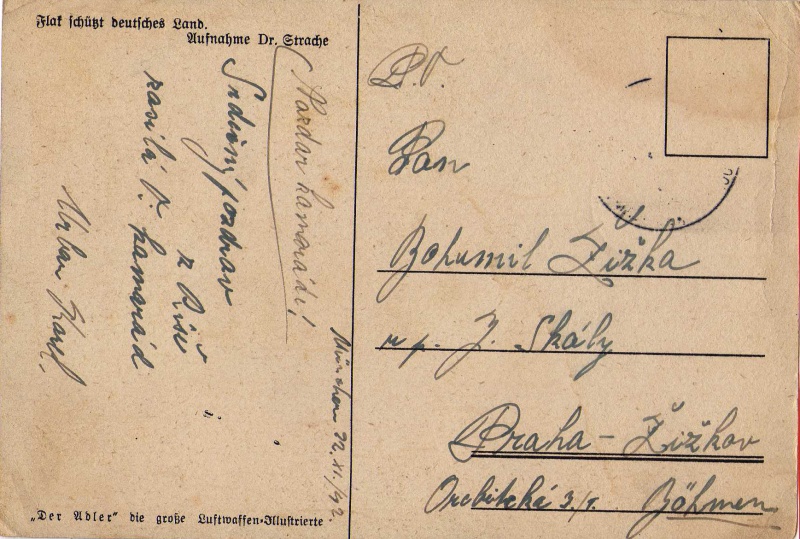 Flak schützt deutsches Land.
Aufnahme Dr. Strache
Nazdar kamarádi!
Srdečný pozdrav
z Říše
zasílá V. kamarád
Urban Karel.
München 22.XI./42.
"Der Adler" die große Luftwaffen-Illustrierte
P.T.
Pan
Bohumil Žižka
u p. J. Skály
Praha - Žižkov
Orebitská 3/I. Böhmen